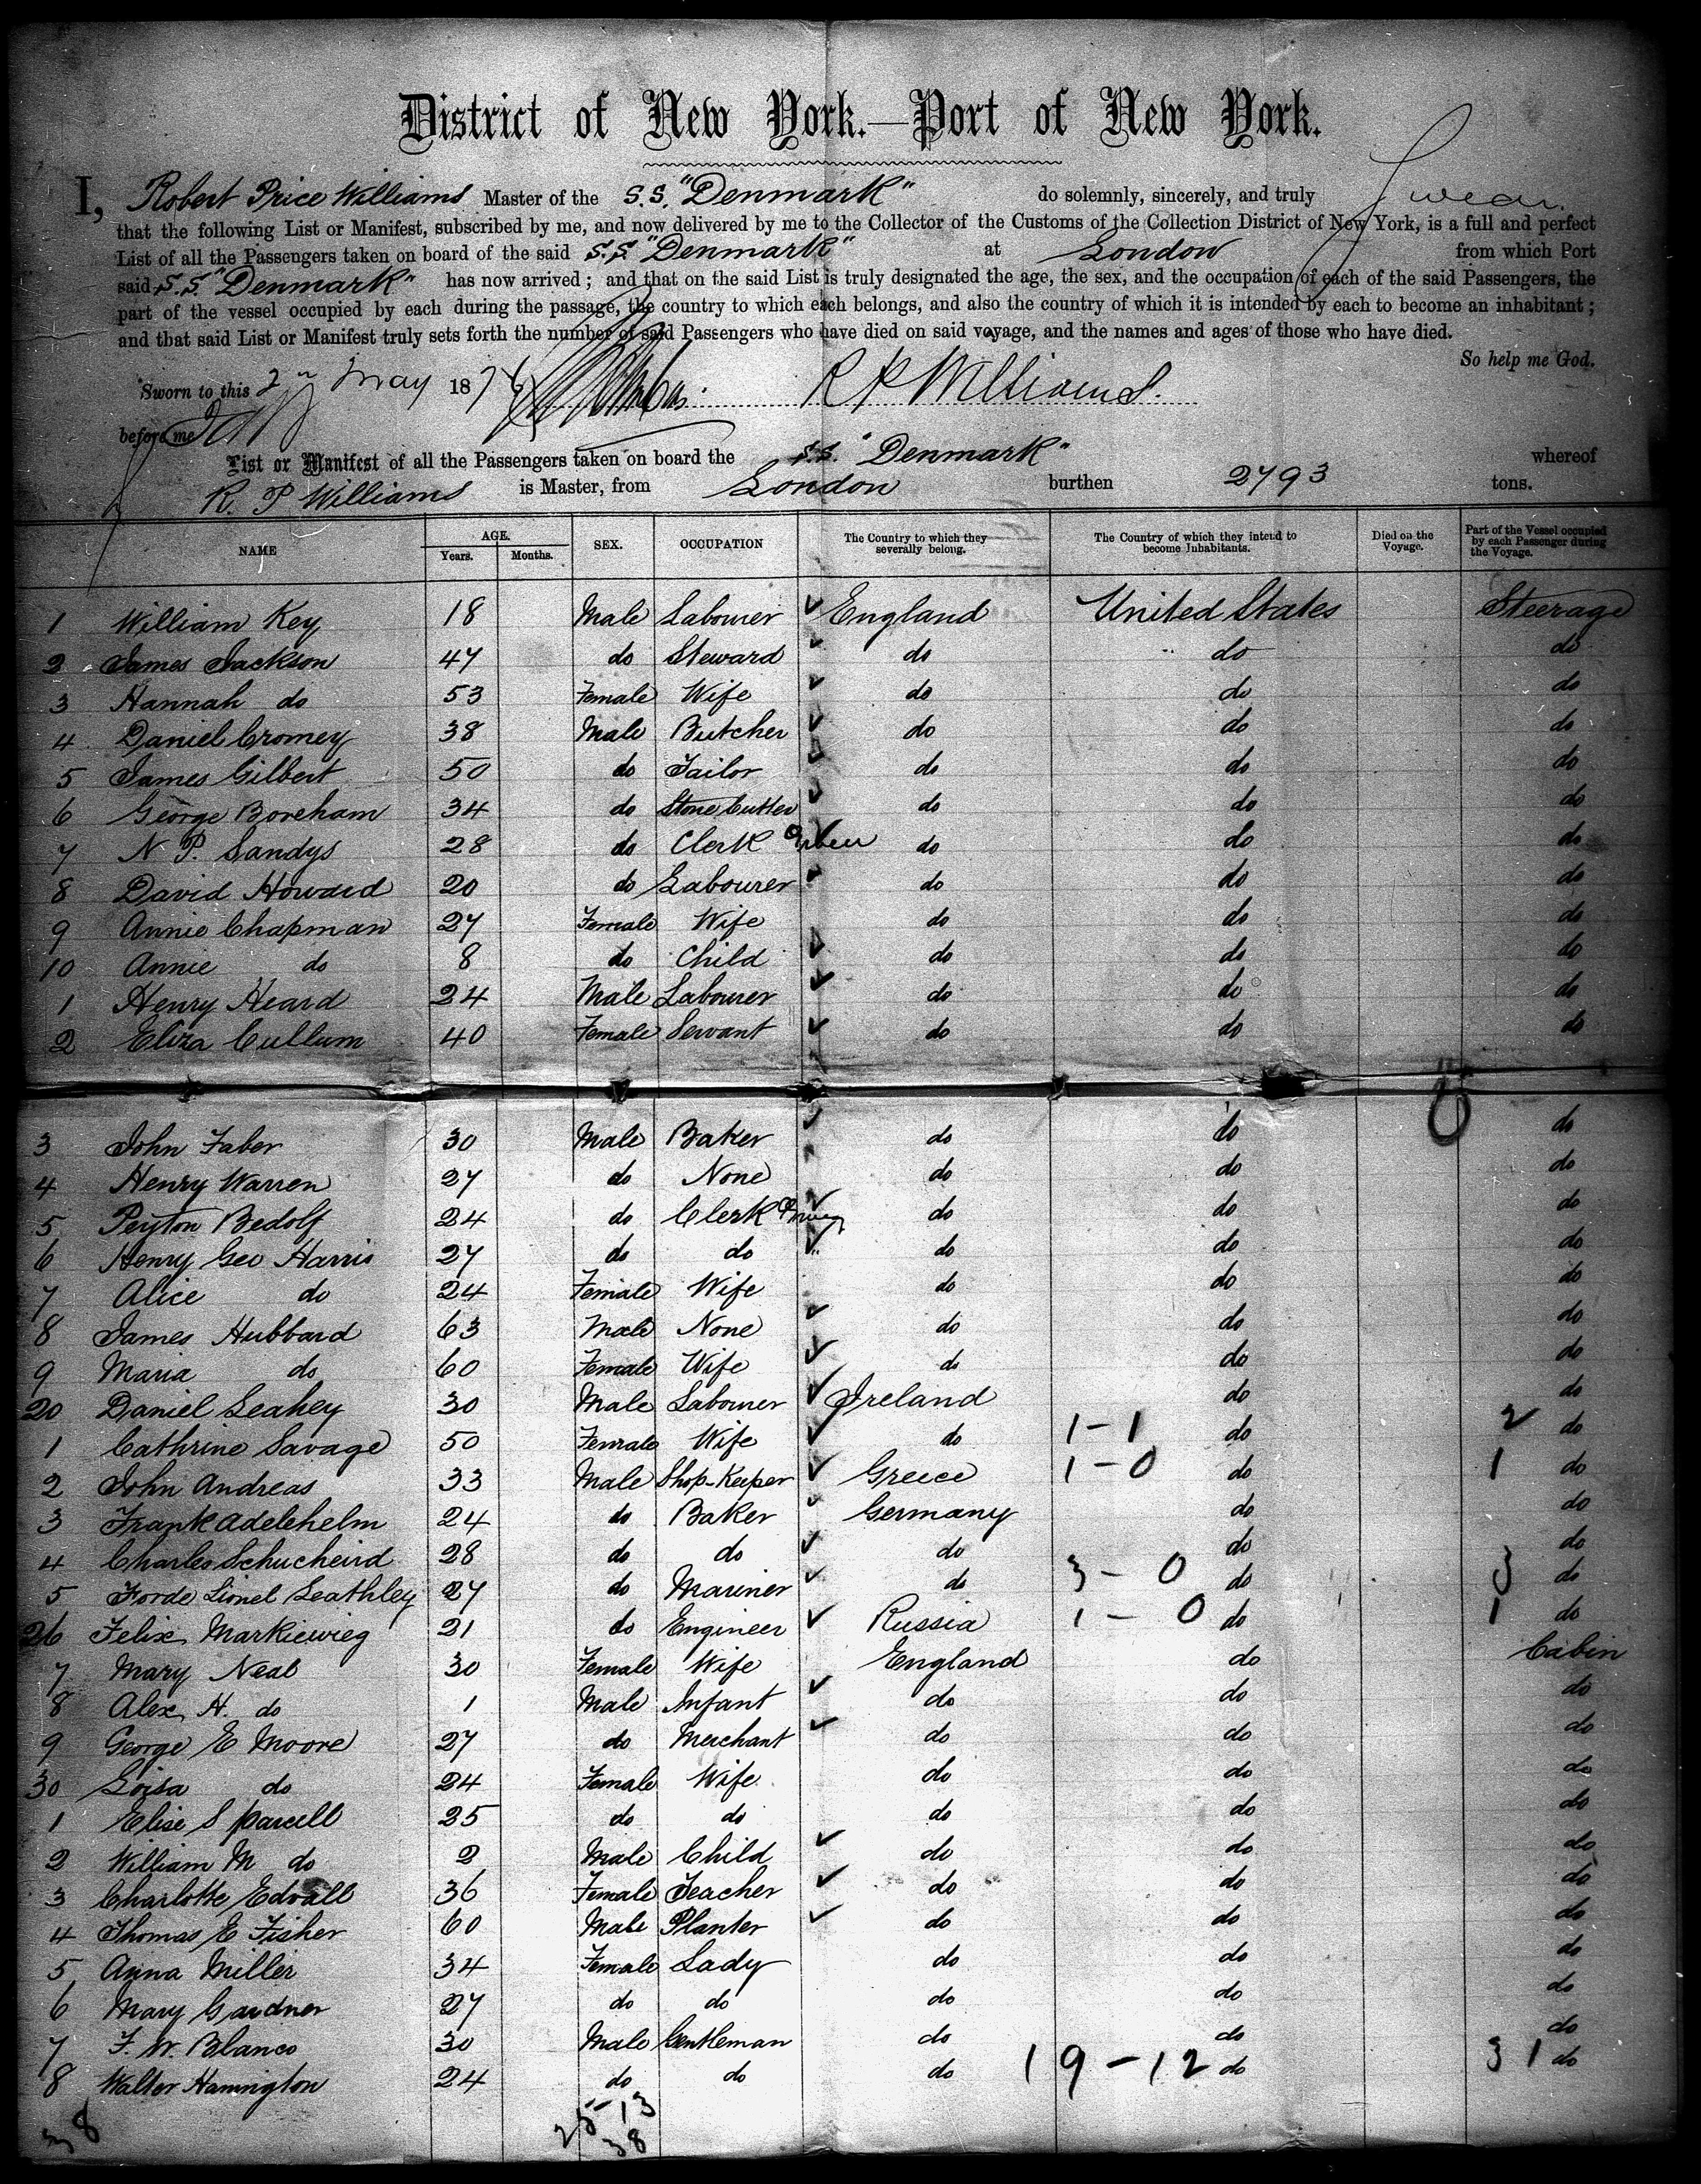 District of New York.—Port of New York.
I, Robert Price Williams Master of the S.S. "Denmark" do solemnly, sincerely, and truly Swear.
that the following List or Manifest, subscribed by me, and now delivered by me to the Collector of the Customs of the Collection District of New York, is a full and perfect
List of all the Passengers taken on board of the said S.S. "Denmark" at London from which Port
said S.S. "Denmark" has now arrived; and that on the said List is truly designated the age, the sex, and the occupation of each of the said Passengers, the
part of the vessel occupied by each during the passage, the country to which each belongs, and also the country of which it is intended by each to become an inhabitant;
and that said List or Manifest truly sets forth the number of said Passengers who have died on said voyage, and the names and ages of those who have died.
So help me God.
Sworn to this 2 May 1874 R P Williams.
before me
List or Manifest of all the Passengers taken on board the S.S. "Denmark" whereof
R. P Williams is Master, from London burthen 2793 tons.
NAME AGE. Years. Months. SEX. OCCUPATION The Country to which they severally belong. The Country of which they intend to become Inhabitants. Died on the Voyage. Part of the Vessel occupied by each Passenger during the Voyage.
1 William Key 18 Male Labourer England United States Steerage
2 James Jackson 47 do Steward do do do
3 Hannah do 53 Female Wife do do do
4 Daniel Cromey 38 Male Butcher do do do
5 James Gilbert 50 do Tailor do do do
6 George Boreham 34 do Stone Cutter do do do
7 N P. Sandys 28 do Clerk do do do
8 David Howard 20 do Labourer do do do
9 Annie Chapman 27 Female Wife do do do
10 Annie do 8 do Child do do do
1 Henry Heard 24 Male Labourer do do do
2 Eliza Cullum 40 Female Servant do do do
3 John Faber 30 Male Baker do do do
4 Henry Warren 27 do None do do do
5 Peyton Bedolf 24 do Clerk do do do
6 Henry Geo Harris 27 do do do do do
7 Alice do 24 Female Wife do do do
8 James Hubbard 63 Male None do do do
9 Maria do 60 Female Wife do do do
20 Daniel Leahey 30 Male Labourer Ireland do do
1 Cathrine Savage 50 Female Wife do 1-1 do 2 do
2 John Andreas 33 Male Shop-Keeper Greece 1-0 do 1 do
3 Frank Adelehelm 24 do Baker Germany do do
4 Charles Schucheird 28 do do do do do
5 Forde Lionel Leathley 27 do Mariner do 3-0 do 3 do
26 Felix Markiewieg 21 do Engineer Russia 1-0 do 1 do
7 Mary Neal 30 Female Wife England do Cabin
8 Alex H. do 1 Male Infant do do do
9 George E Moore 27 do Merchant do do do
30 Loisa do 24 Female Wife do do do
1 Elise S Parcell 25 do do do do do
2 William M do 2 Male Child do do do
3 Charlotte Edvall 36 Female Teacher do do do
4 Thomas E Fisher 60 Male Planter do do do
5 Anna Miller 34 Female Lady do do do
6 Mary Gardner 27 do do do do do
7 F. W. Blanco 30 Male Gentleman do do do
8 Walter Hanington 24 do do do 19-12 do 31 do
38 25-13
38